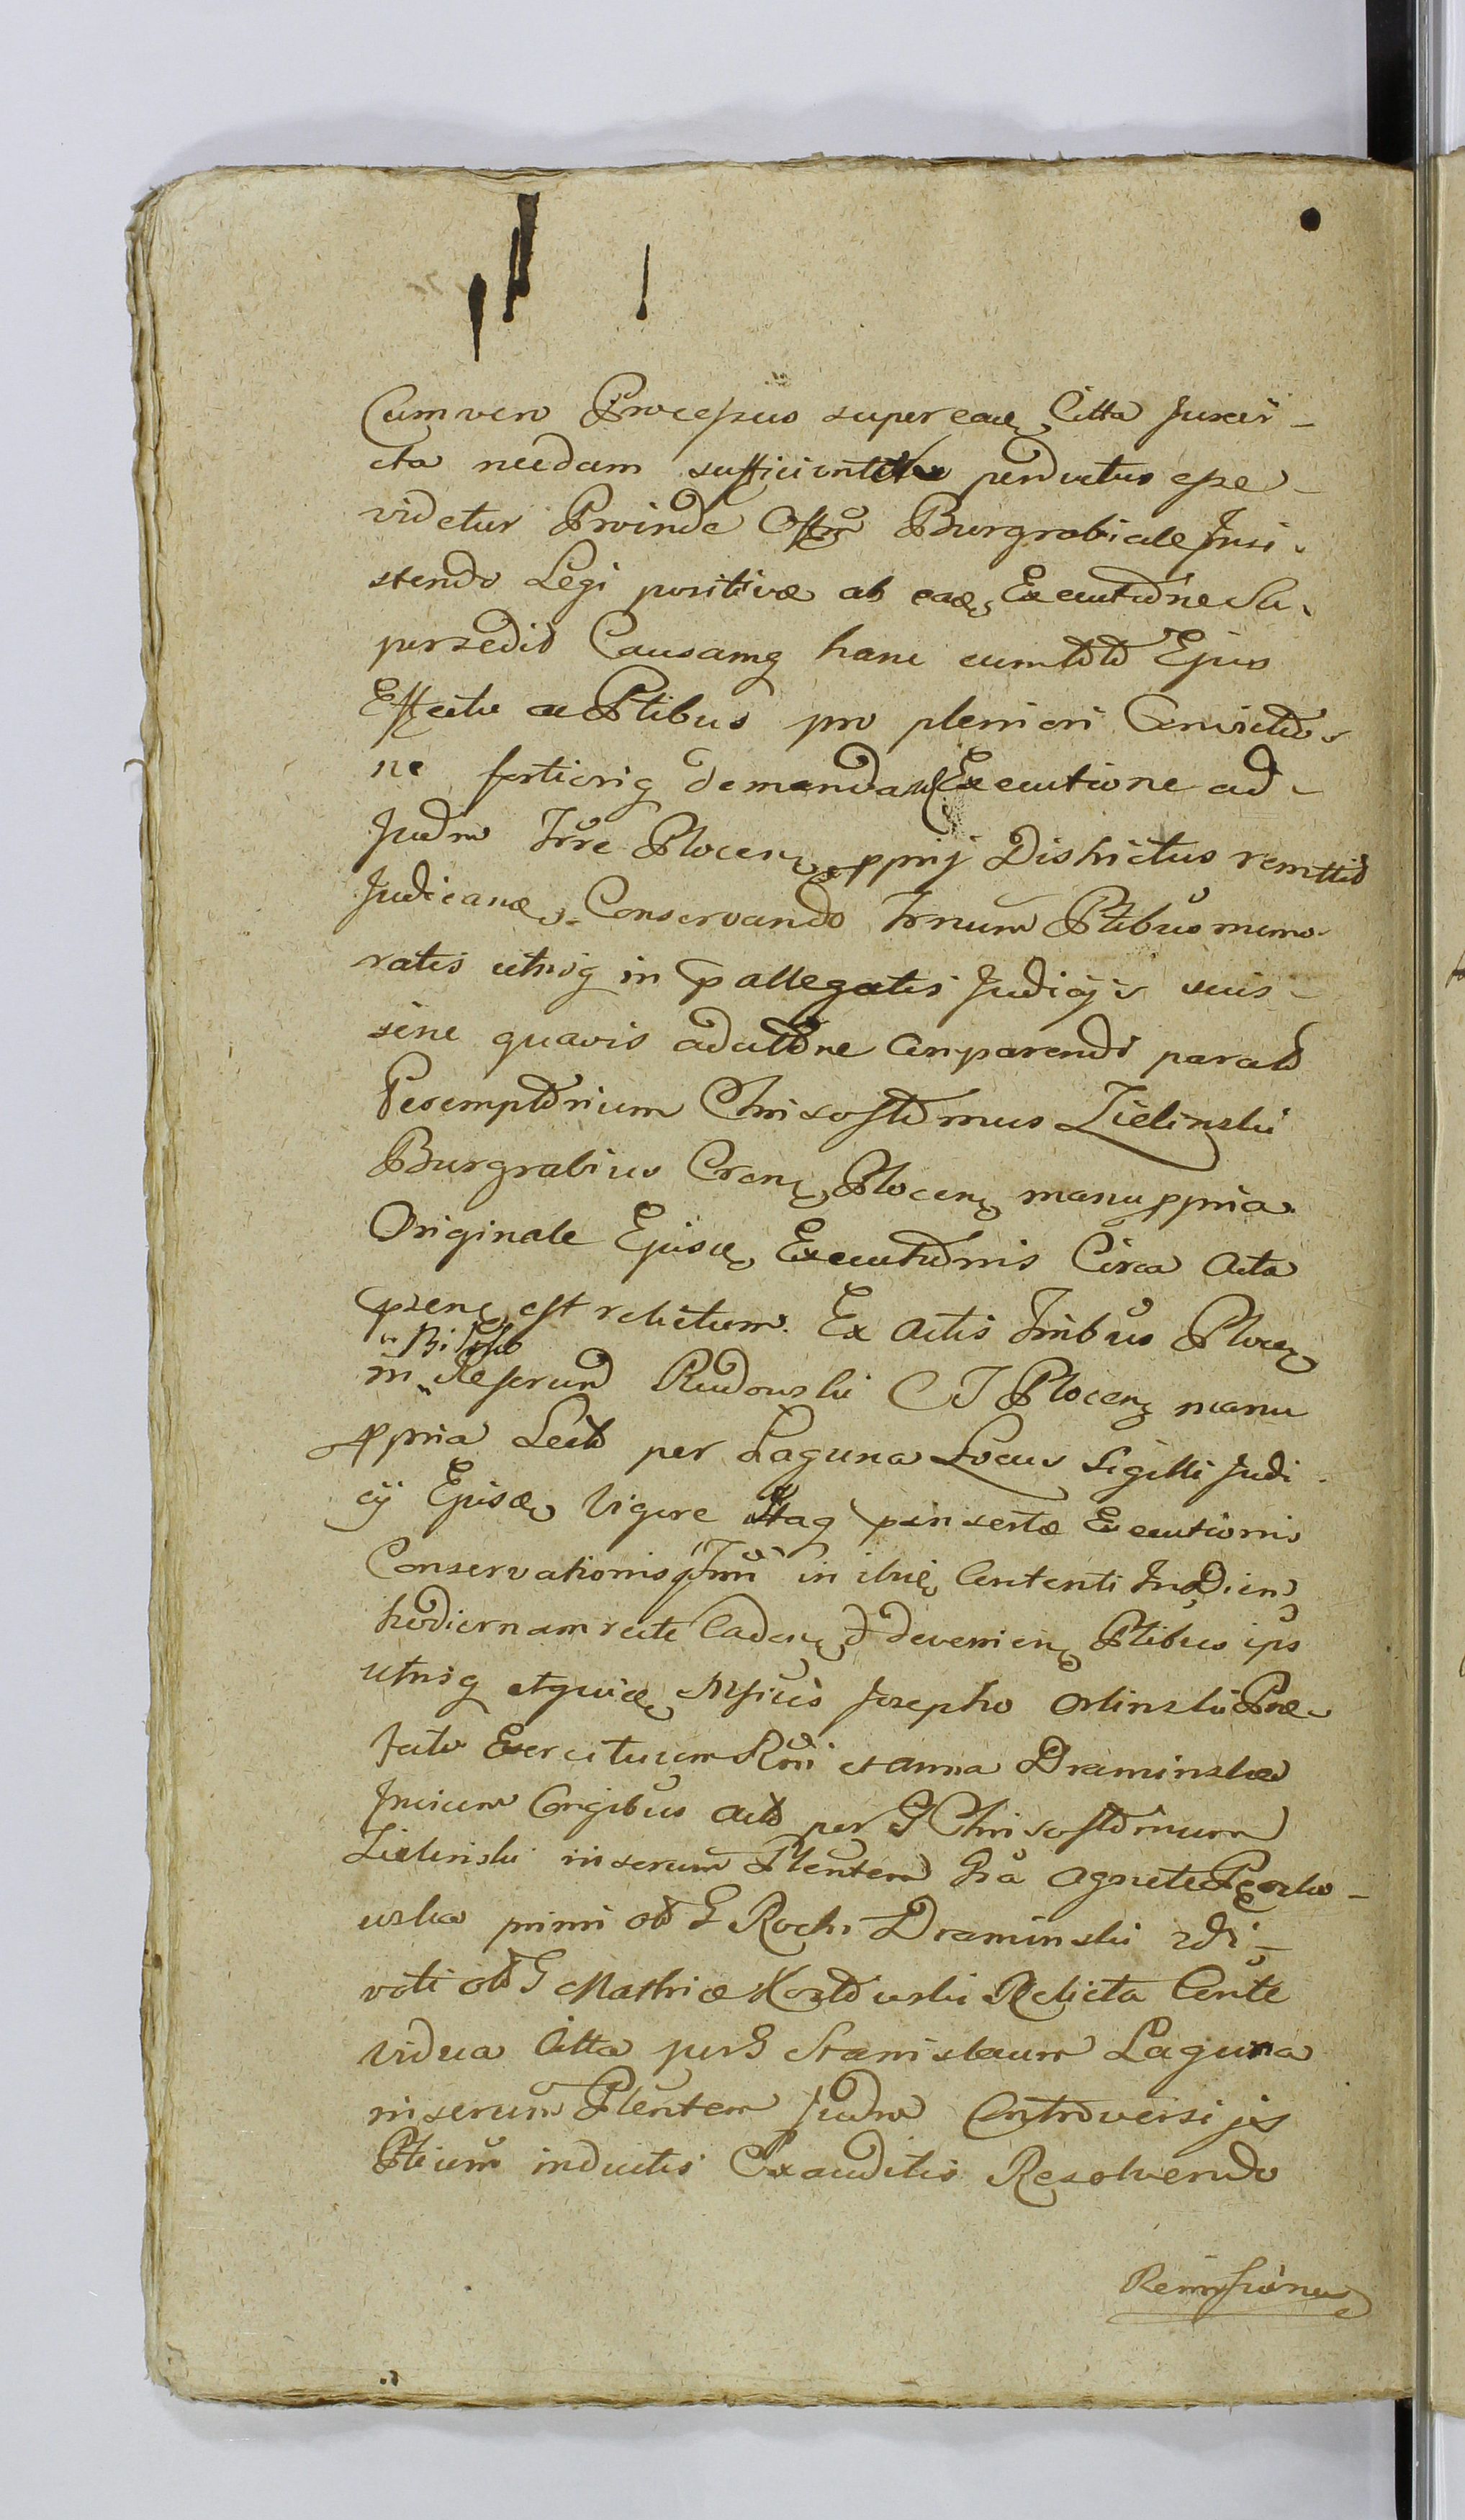 Cum vero Processus super eaḍ Citta Juxer-
cta needum sufficienter perductus esse
videtur Proinde Offm̃ Burgrabiale Insi-
stendo Legi positivæ ab eaḍ Executione Su-
persedit Causamq hanc cum toto Ejus
Effectu ac Ptibus pro pleniori Convictio-
ne fortioriq demandaň Executione ad
Judm Trre Plocenę pprij Districtus remittit
Judicanḍ. Conservando Trnum Ptibus memo-
ratis utrisq in pallegatis Judicijs suis
sine quavis adcittõne Comparendi parato
Peremptorium Chrisostomus Zielinski
Burgrabius Crenę Plocenę manu ppria
Originale Ejusḍ Executionis Circa Acta
psenę est relictum. Ex Actis Trribus Plocenę
in Reserund Rudowski CT Plocenę manu
ppria Lecto per Laguna Locus Sigilli Judi-
cij Ejusḍ Vigore itaq psinsertæ Executionis
Conservationisq Trni in ibiḍ Contenti In Dienę
hodiernam recte Cadenę et devenienę Ptibus ips
utrisq atquiḍ Msficis Josepho Orlinski Præ-
fecto Exercituum Rni et Anna Draminska
Invicem Conjgibus Acto per G Chrisostomum
Zielinski inserum Plentem Gsa Agnete
wska primi oto G Rochi Draminski 2di
voti oto G Mathiæ Kozłowski Relicta Cente
vidua Citta per G Stanislaum Laguna
inserum Plentem Judm Controversijs
Ptium inductis Exauditis Resolvendo
Remissionem